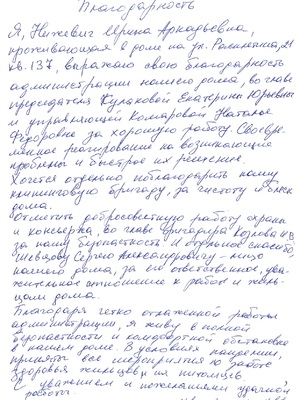 Благодарность
Я, Нижевич Ирина Аркадьевна,
проживающая в доме на ул.
кв. 137, выражаю свою благодарность
администрации нашего дома, во главе
председателя Кулаковой Екатерины Юрьевны
и управляющей Комаровой Наталье
Фёдоровне за хорошую работу. Своевре-
менное реагирование на возникающие
проблемы и быстрое их решение.
Хочется отдельно поблагодарить нашу
клининговую бригаду, за чистоту и блеск
дома.
Отметить добросовестную работу охраны
и консьержа, во главе бригадира Козлова
за нашу безопасность. И отдельное спасибо
Сергею Александровичу -
нашего дома, за его ответственное, ува-
жительное отношение к работе и жиль-
цам дома.
Благодаря четко отлаженной работе
администрации, я живу в полной
безопасности и комфортной обстановке
в нашем доме. В условиях пандемии,
приняты все мероприятия по заботе
здоровья жильцов и их питомцев.
С уважением и пожеланиями удачной
работы.